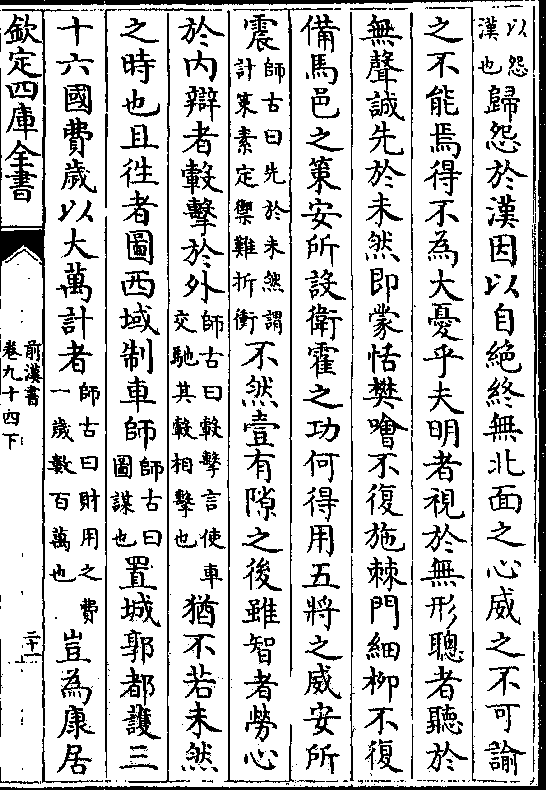 以怨
漢也歸怨於漢因以自絶終無北面之心威之不可諭
之不能焉得不為大憂乎夫明者視於無形聰者聽於
無聲誠先於未然即蒙恬樊噲不復施棘門細栁不復
備馬邑之策安所設衛霍之功何得用五將之威安所
震師古曰先於未然謂
計策素定禦難折衝不然壹有隙之後雖智者勞心
於内辯者轂擊於外師古曰轂擊言使車
交馳其轂相擊也猶不若未然
之時也且徃者圖西域制車師師古曰
圖謀也置城郭都護三
十六國費歲以大萬計者師古曰財用之費
一歲數百萬也豈為康居
欽定四庫全書
前漢書
卷九十四下
二十一